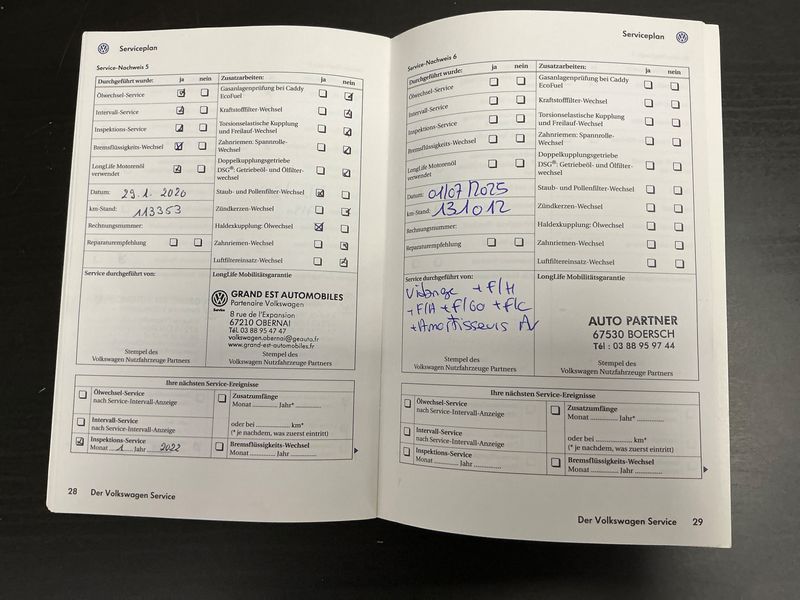 Serviceplan
Service-Nachweis 5
Durchgeführt wurde: ja nein Zusatzarbeiten: ja nein
Ölwechsel-Service
Gasanlagenprüfung bei Caddy
EcoFuel
Intervall-Service
Kraftstofffilter-Wechsel
Inspektions-Service
Torsionselastische Kupplung
und Freilauf-Wechsel
Bremsflüssigkeits-Wechsel
Zahnriemen: Spannrolle-
Wechsel
LongLife Motorenöl
verwendet
Doppelkupplungsgetriebe
DSG®: Getriebeöl- und Ölfilter-
wechsel
Datum: 29.1.2020
Staub- und Pollenfilter-Wechsel
km-Stand: 113353
Zündkerzen-Wechsel
Rechnungsnummer:
Haldexkupplung: Ölwechsel
Reparaturempfehlung
Zahnriemen-Wechsel
Luftfiltereinsatz-Wechsel
Service durchgeführt von:
LongLife Mobilitätsgarantie
Service
GRAND EST AUTOMOBILES
Partenaire Volkswagen
8 rue de l'Expansion
67210 OBERNAI
Tél. 03 88 95 47 47
volkswagen.obernai@geauto.fr
www.grand-est-automobiles.fr
Stempel des
Volkswagen Nutzfahrzeuge Partners
Stempel des
Volkswagen Nutzfahrzeuge Partners
Ihre nächsten Service-Ereignisse
Ölwechsel-Service
nach Service-Intervall-Anzeige
Zusatzumfänge
Monat Jahr*
oder bei km*
(* je nachdem, was zuerst eintritt)
Intervall-Service
nach Service-Intervall-Anzeige
Inspektions-Service
Monat 1 Jahr 2022
Bremsflüssigkeits-Wechsel
Monat Jahr
28 Der Volkswagen Service
Serviceplan
Service-Nachweis 6
Durchgeführt wurde: ja nein Zusatzarbeiten: ja nein
Ölwechsel-Service
Gasanlagenprüfung bei Caddy
EcoFuel
Intervall-Service
Kraftstofffilter-Wechsel
Inspektions-Service
Torsionselastische Kupplung
und Freilauf-Wechsel
Bremsflüssigkeits-Wechsel
Zahnriemen: Spannrolle-
Wechsel
LongLife Motorenöl
verwendet
Doppelkupplungsgetriebe
DSG®: Getriebeöl- und Ölfilter-
wechsel
Datum: 01/07/2025
Staub- und Pollenfilter-Wechsel
km-Stand: 131012
Zündkerzen-Wechsel
Rechnungsnummer:
Haldexkupplung: Ölwechsel
Reparaturempfehlung
Zahnriemen-Wechsel
Luftfiltereinsatz-Wechsel
Service durchgeführt von:
LongLife Mobilitätsgarantie
Vidange + F/H
+ F/A + F/GO + F/C
+ Amortisseurs AV
AUTO PARTNER
67530 BOERSCH
Tél : 03 88 95 97 44
Stempel des
Volkswagen Nutzfahrzeuge Partners
Stempel des
Volkswagen Nutzfahrzeuge Partners
Ihre nächsten Service-Ereignisse
Ölwechsel-Service
nach Service-Intervall-Anzeige
Zusatzumfänge
Monat Jahr*
oder bei km*
(* je nachdem, was zuerst eintritt)
Intervall-Service
nach Service-Intervall-Anzeige
Inspektions-Service
Monat Jahr
Bremsflüssigkeits-Wechsel
Monat Jahr
Der Volkswagen Service 29